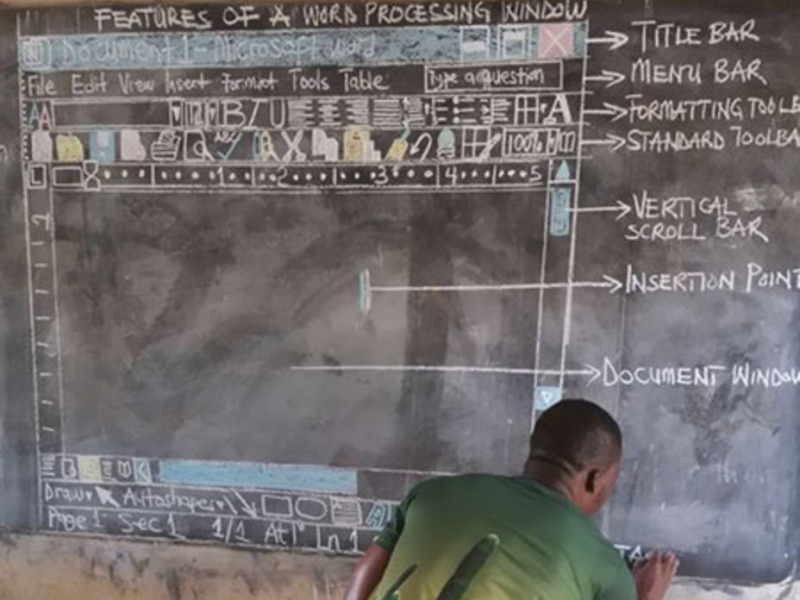 FEATURES OF A WORD PROCESSING WINDOW
Document 1 - Microsoft Word
TITLE BAR
File Edit View Insert Format Tools Table
Type a question
MENU BAR
AA
B I U
A
FORMATTING TOOLB
ABC
100%
STANDARD TOOLBA
L
1 2 3 4 5
VERTICAL
SCROLL BAR
INSERTION POINT
DOCUMENT WINDOW
Draw Autoshapes
A
Page 1 Sec 1 1/1 At Ln 1
STA